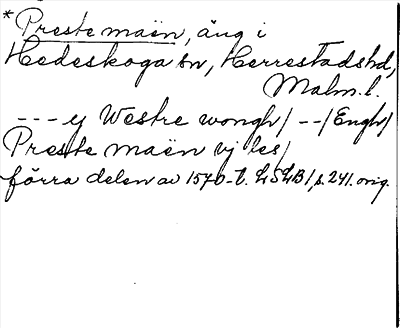 * Preste maën, äng i
Hedeskoga sn, Herrestads hd,
Malm. l.
--- y Westre wongh/ --/Engh/
Preste maën vj les/
förra delen av 1570-t. LSLB1, s. 241. orig.